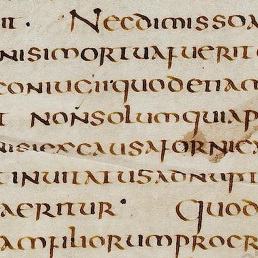 it. Necdimissoa
nisimortuafuerit
coniugirquodetiam
t nonsolumquiap
nisiexcausafornica
tinuitatusadnupt
aeritur· Quod
amfiliorumprocr